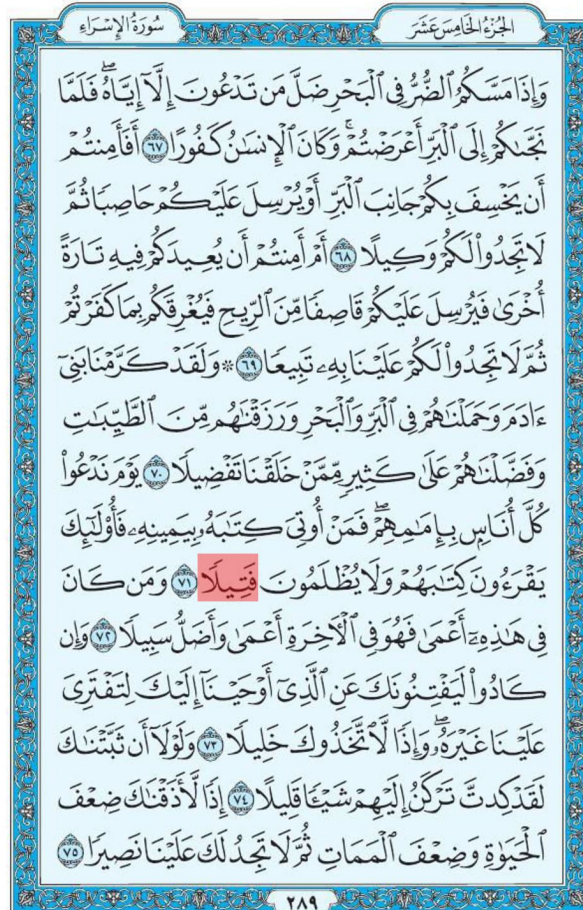 سُورَةُ الإِسْرَاءِ
الجُزْءُ الخَامِسَ عَشَرَ
وَإِذَا مَسَّكُمُ ٱلضُّرُّ فِى ٱلْبَحْرِ ضَلَّ مَن تَدْعُونَ إِلَّآ إِيَّاهُ ۖ فَلَمَّا
نَجَّىٰكُمْ إِلَى ٱلْبَرِّ أَعْرَضْتُمْ ۚ وَكَانَ ٱلْإِنسَـٰنُ كَفُورًا ٦٧ أَفَأَمِنتُمْ
أَن يَخْسِفَ بِكُمْ جَانِبَ ٱلْبَرِّ أَوْ يُرْسِلَ عَلَيْكُمْ حَاصِبًا ثُمَّ
لَا تَجِدُوا۟ لَكُمْ وَكِيلًا ٦٨ أَمْ أَمِنتُمْ أَن يُعِيدَكُمْ فِيهِ تَارَةً
أُخْرَىٰ فَيُرْسِلَ عَلَيْكُمْ قَاصِفًا مِّنَ ٱلرِّيحِ فَيُغْرِقَكُم بِمَا كَفَرْتُمْ
ثُمَّ لَا تَجِدُوا۟ لَكُمْ عَلَيْنَا بِهِۦ تَبِيعًا ٦٩ ۞ وَلَقَدْ كَرَّمْنَا بَنِىٓ
ءَادَمَ وَحَمَلْنَـٰهُمْ فِى ٱلْبَرِّ وَٱلْبَحْرِ وَرَزَقْنَـٰهُم مِّنَ ٱلطَّيِّبَـٰتِ
وَفَضَّلْنَـٰهُمْ عَلَىٰ كَثِيرٍ مِّمَّنْ خَلَقْنَا تَفْضِيلًا ٧٠ يَوْمَ نَدْعُوا۟
كُلَّ أُنَاسٍۭ بِإِمَـٰمِهِمْ ۖ فَمَنْ أُوتِىَ كِتَـٰبَهُۥ بِيَمِينِهِۦ فَأُو۟لَـٰٓئِكَ
يَقْرَءُونَ كِتَـٰبَهُمْ وَلَا يُظْلَمُونَ فَتِيلًا ٧١ وَمَن كَانَ
فِى هَـٰذِهِۦٓ أَعْمَىٰ فَهُوَ فِى ٱلْـَٔاخِرَةِ أَعْمَىٰ وَأَضَلُّ سَبِيلًا ٧٢ وَإِن
كَادُوا۟ لَيَفْتِنُونَكَ عَنِ ٱلَّذِىٓ أَوْحَيْنَآ إِلَيْكَ لِتَفْتَرِىَ
عَلَيْنَا غَيْرَهُۥ ۖ وَإِذًا لَّٱتَّخَذُوكَ خَلِيلًا ٧٣ وَلَوْلَآ أَن ثَبَّتْنَـٰكَ
لَقَدْ كِدتَّ تَرْكَنُ إِلَيْهِمْ شَيْـًٔا قَلِيلًا ٧٤ إِذًا لَّأَذَقْنَـٰكَ ضِعْفَ
ٱلْحَيَوٰةِ وَضِعْفَ ٱلْمَمَاتِ ثُمَّ لَا تَجِدُ لَكَ عَلَيْنَا نَصِيرًا ٧٥
٢٨٩